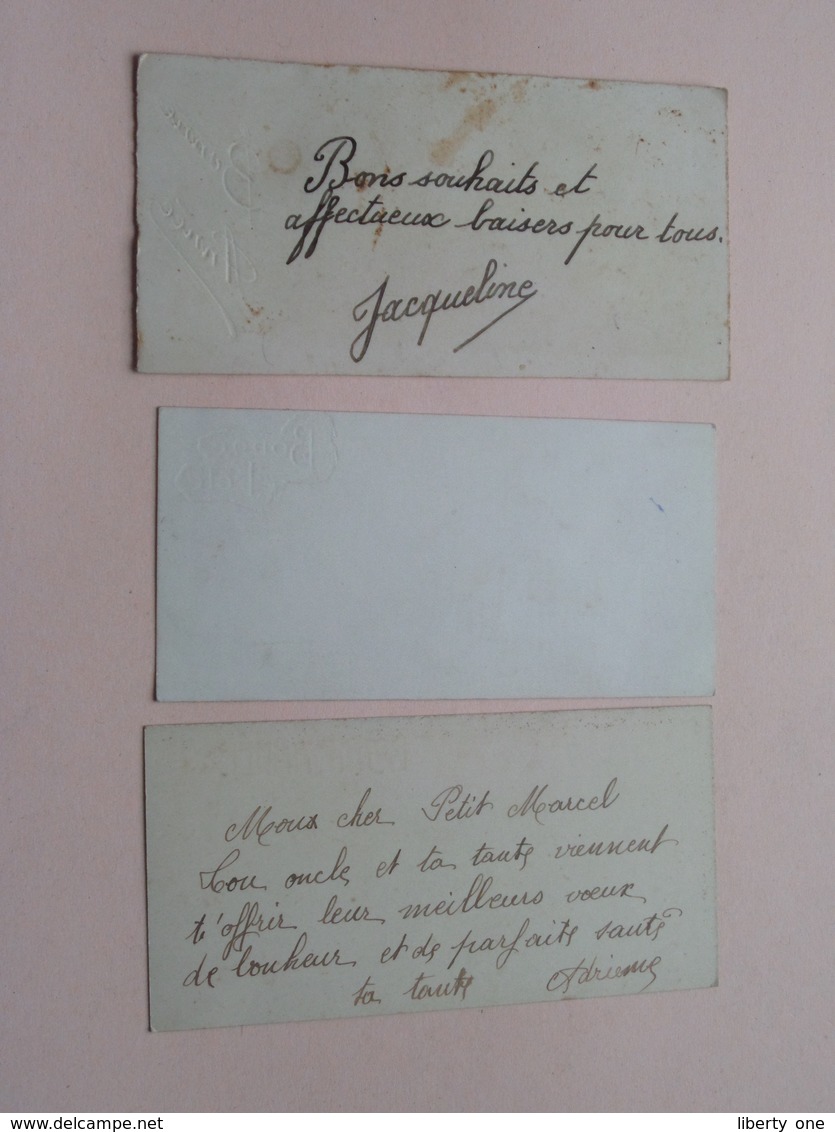 Bonne
Année
Bons souhaits et
affectueux baisers pour tous.
Jacqueline
Bonne
Fête
Moux cher Petit Marcel
Ton oncle et ta tante viennent
t'offrir leur meilleurs vœux
de bonheur et de parfaite santé
ta tante Adrienne
www.delcampe.net
liberty one